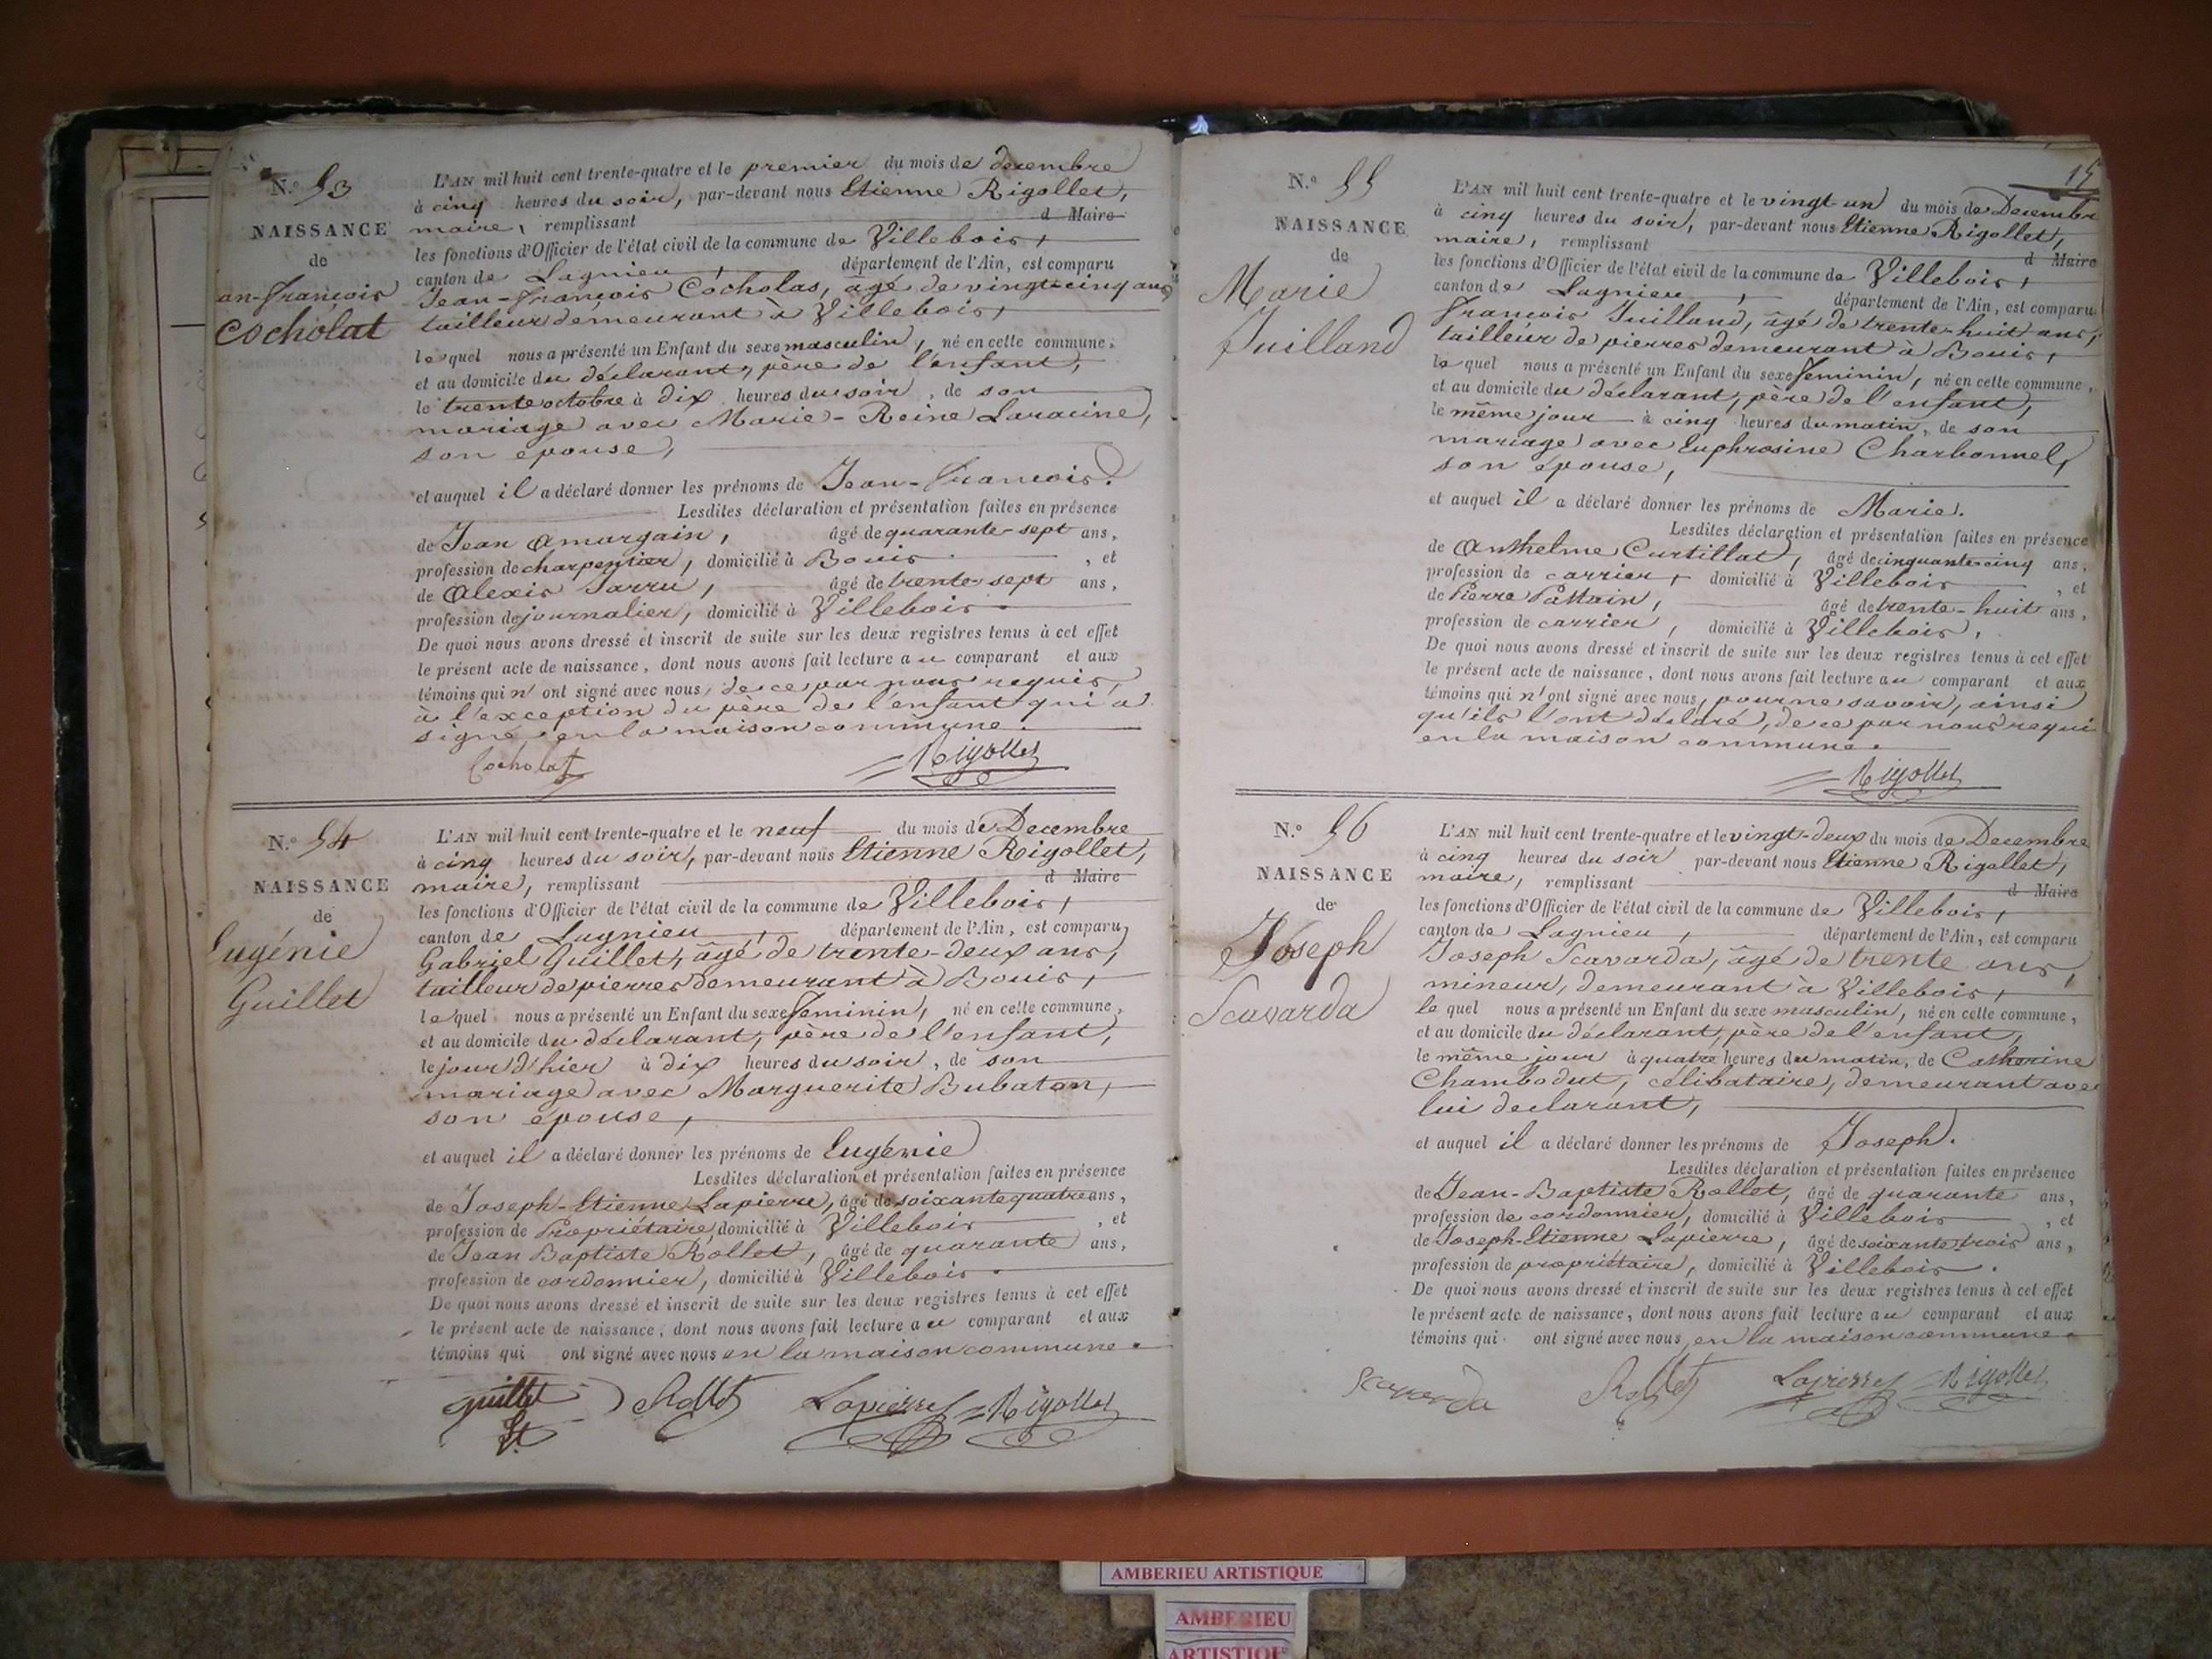 N.º 53
NAISSANCE
de
an-François
Cocholat
L'AN mil huit cent trente-quatre et le premier du mois de decembre
à cinq heures du soir, par-devant nous Etienne Rigollet,
maire, remplissant d Maire
les fonctions d'Officier de l'état civil de la commune de Villebois,
canton de Lagnieu, département de l'Ain, est comparu
Jean-François Cocholas, âgé de vingt-cinq ans
tailleur demeurant à Villebois,
lequel nous a présenté un Enfant du sexe masculin, né en cette commune,
et au domicile du déclarant, père de l'enfant,
le trente octobre à dix heures du soir, de son
mariage avec Marie-Reine Laracine,
son épouse,
et auquel il a déclaré donner les prénoms de Jean-Francois.
Lesdites déclaration et présentation faites en présence
de Jean Amurgain, âgé de quarante-sept ans,
profession de charpentier, domicilié à Bouis, et
de Alexis Sarru, âgé de trente-sept ans,
profession de journalier, domicilié à Villebois.
De quoi nous avons dressé et inscrit de suite sur les deux registres tenus à cet effet
le présent acte de naissance, dont nous avons fait lecture au comparant et aux
témoins qui n'ont signé avec nous, de ce par nous requis,
à l'exception du père de l'enfant qui a
signé en la maison commune.
Cocholat Rigollet
N.º 54
NAISSANCE
de
Eugénie
Guillet
L'AN mil huit cent trente-quatre et le neuf du mois de Decembre
à cinq heures du soir, par-devant nous Etienne Rigollet,
maire, remplissant d Maire
les fonctions d'Officier de l'état civil de la commune de Villebois,
canton de Lagnieu, département de l'Ain, est comparu
Gabriel Guillet, âgé de trente-deux ans,
tailleur de pierres demeurant à Bouis,
lequel nous a présenté un Enfant du sexe feminin, né en cette commune,
et au domicile du déclarant, père de l'enfant,
le jour d'hier à dix heures du soir, de son
mariage avec Marguerite Bubaton,
son épouse,
et auquel il a déclaré donner les prénoms de Eugénie
Lesdites déclaration et présentation faites en présence
de Joseph-Etienne Lapierre, âgé de soixante quatre ans,
profession de Propriétaire, domicilié à Villebois, et
de Jean Baptiste Rollet, âgé de quarante ans,
profession de cordonnier, domicilié à Villebois.
De quoi nous avons dressé et inscrit de suite sur les deux registres tenus à cet effet
le présent acte de naissance, dont nous avons fait lecture au comparant et aux
témoins qui ont signé avec nous en la maison commune.
guillet Rollet Lapierre Rigollet
15
N.º 55
NAISSANCE
de
Marie
Juilland
L'AN mil huit cent trente-quatre et le vingt-un du mois de Decembre
à cinq heures du soir, par-devant nous Etienne Rigollet,
maire, remplissant d Maire
les fonctions d'Officier de l'état civil de la commune de Villebois,
canton de Lagnieu, département de l'Ain, est comparu
François Juilland, âgé de trente-huit ans,
tailleur de pierres demeurant à Bouis,
lequel nous a présenté un Enfant du sexe feminin, né en cette commune,
et au domicile du déclarant, père de l'enfant,
le même jour à cinq heures du matin, de son
mariage avec Euphrosine Charbonnel,
son épouse,
et auquel il a déclaré donner les prénoms de Marie.
Lesdites déclaration et présentation faites en présence
de Anthelme Curtillat, âgé de cinquante-cinq ans,
profession de carrier, domicilié à Villebois, et
de Pierre Pattain, âgé de trente-huit ans,
profession de carrier, domicilié à Villebois,
De quoi nous avons dressé et inscrit de suite sur les deux registres tenus à cet effet
le présent acte de naissance, dont nous avons fait lecture au comparant et aux
témoins qui n'ont signé avec nous, pour ne savoir, ainsi
qu'ils l'ont déclaré, de ce par nous requi
en la maison commune.
Rigollet
N.º 56
NAISSANCE
de
Joseph
Scavarda
L'AN mil huit cent trente-quatre et le vingt-deux du mois de Decembre
à cinq heures du soir par-devant nous Etienne Rigollet,
maire, remplissant d Maire
les fonctions d'Officier de l'état civil de la commune de Villebois,
canton de Lagnieu, département de l'Ain, est comparu
Joseph Scavarda, âgé de trente ans,
mineur, demeurant à Villebois,
lequel nous a présenté un Enfant du sexe masculin, né en cette commune,
et au domicile du déclarant, père de l'enfant,
le même jour à quatre heures du matin, de Catherine
Chambodut, célibataire, demeurant avec
lui declarant,
et auquel il a déclaré donner les prénoms de Joseph.
Lesdites déclaration et présentation faites en présence
de Jean-Baptiste Rollet, âgé de quarante ans,
profession de cordonnier, domicilié à Villebois, et
de Joseph-Etienne Lapierre, âgé de soixante-trois ans,
profession de propriétaire, domicilié à Villebois.
De quoi nous avons dressé et inscrit de suite sur les deux registres tenus à cet effet
le présent acte de naissance, dont nous avons fait lecture au comparant et aux
témoins qui ont signé avec nous, en la maison commune.
Scavarda Rollet Lapierre Rigollet
AMBERIEU ARTISTIQUE
AMBERIEU
ARTISTIQUE